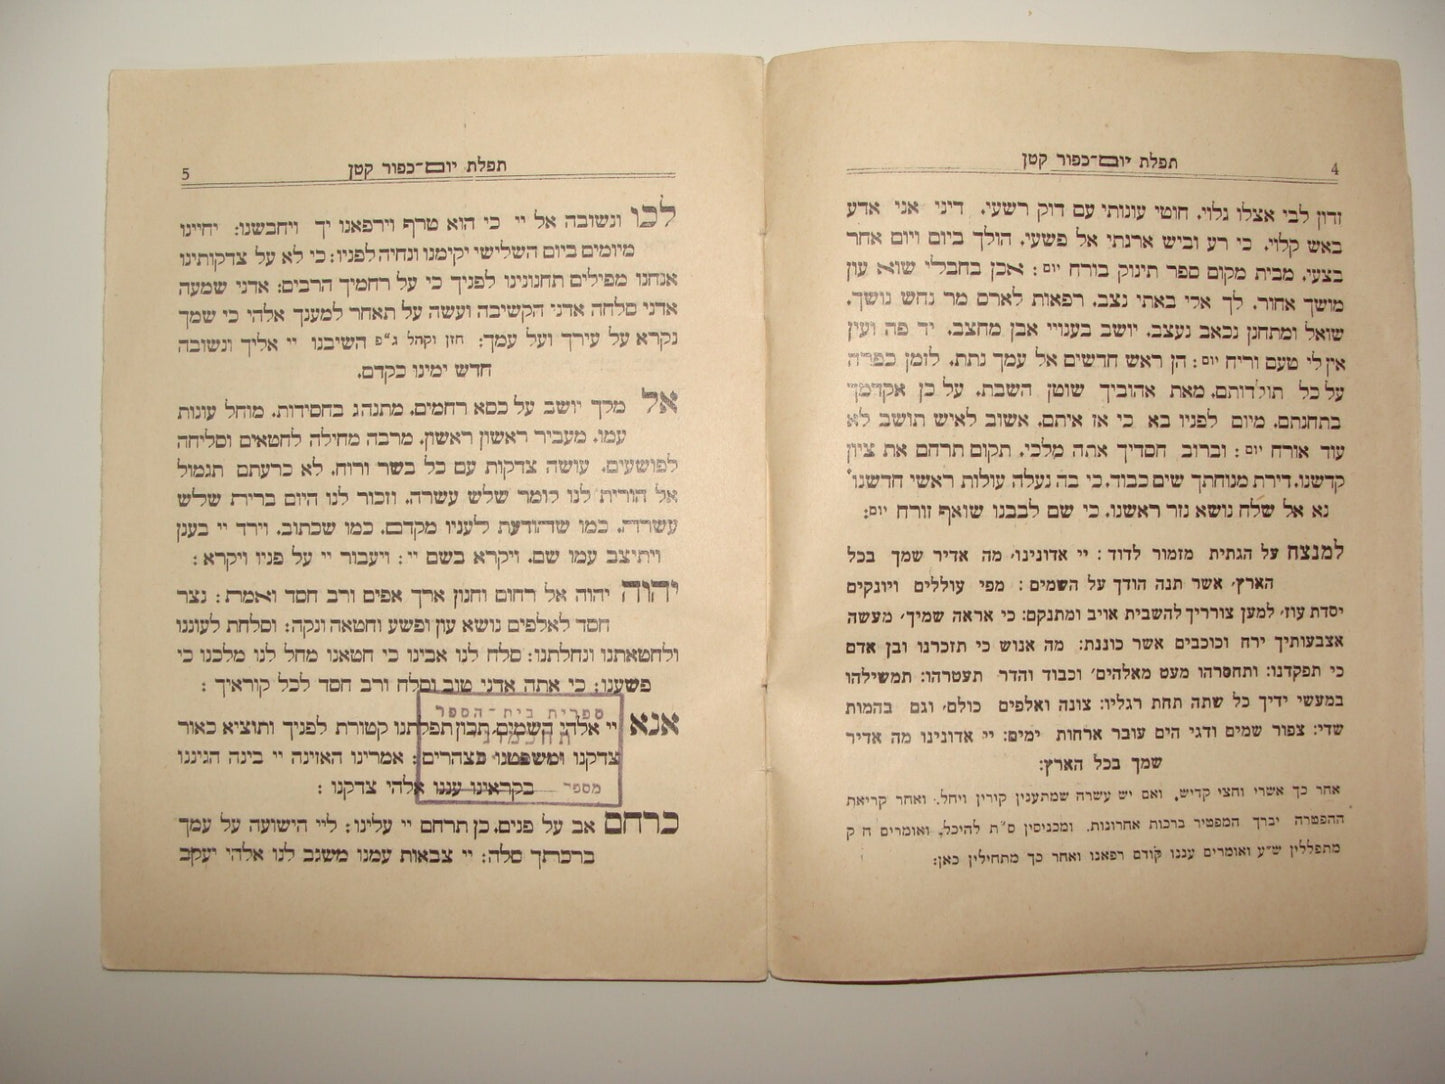 תפלת יום־כפור קטן
4
זדון לבי אצלו גלוי. חוטי עונותי עם דוק רשעי. דיני אני אדע
באש קלוי. כי רע וביש ארגתי אל פשעי. הולך ביום ויום אחר
בצעי. מבית מקום ספר תינוק בורח יום: אכן בחבלי שוא עון
מושך אחור. לך אלי באתי נצב. רפאות לארס מר נחש נושך.
שואל ומתחנן נכאב נעצב. יושב בענויי אבן מחצב. יד פה ועין
אין לי טעם וריח יום: הן ראש חדשים אל עמך נתת. לזמן כפרה
על כל תולדותם. מאת אהוביך שוטן השבת. על כן אקדמך
בתחנתם. מיום לפניו בא כי אז איתם. אשוב לאיש תושב לא
עוד אורח יום: וברוב חסדיך אתה מלכי. תקום תרחם את ציון
קדשנו. דירת מנוחתך שים כבוד. כי בה נעלה עולות ראשי חדשנו.
נא אל שלח נושא נזר ראשנו. כי שם לבבנו שואף זורח יום:
למנצח על הגתית מזמור לדוד: יי אדונינו, מה אדיר שמך בכל
הארץ, אשר תנה הודך על השמים: מפי עוללים ויונקים
יסדת עוז, למען צורריך להשבית אויב ומתנקם: כי אראה שמיך, מעשה
אצבעותיך ירח וכוכבים אשר כוננת: מה אנוש כי תזכרנו ובן אדם
כי תפקדנו: ותחסרהו מעט מאלהים, וכבוד והדר תעטרהו: תמשילהו
במעשי ידיך כל שתה תחת רגליו: צונה ואלפים כולם, וגם בהמות
שדי: צפור שמים ודגי הים עובר ארחות ימים: יי אדונינו מה אדיר
שמך בכל הארץ:
אחר כך אשרי וחצי קדיש. ואם יש עשרה שמתענין קורין ויחל. ואחר קריאת
ההפטרה יברך המפטיר ברכות אחרונות. ומכניסין ס״ת להיכל. ואומרים ח ק
מתפללין ש״ע ואומרים עננו קודם רפאנו ואחר כך מתחילין כאן:
תפלת יום־כפור קטן
5
לכו ונשובה אל יי כי הוא טרף וירפאנו יך ויחבשנו: יחיינו
מיומים ביום השלישי יקימנו ונחיה לפניו: כי לא על צדקותינו
אנחנו מפילים תחנונינו לפניך כי על רחמיך הרבים: אדני שמעה
אדני סלחה אדני הקשיבה ועשה על תאחר למענך אלהי כי שמך
נקרא על עירך ועל עמך: חזן וקהל ג״פ השיבנו יי אליך ונשובה
חדש ימינו כקדם.
אל מלך יושב על כסא רחמים. מתנהג בחסידות. מוחל עונות
עמו. מעביר ראשון ראשון. מרבה מחילה לחטאים וסליחה
לפושעים. עושה צדקות עם כל בשר ורוח. לא כרעתם תגמול
אל הורית לנו לומר שלש עשרה. וזכור לנו היום ברית שלש
עשרה. כמו שהודעת לעניו מקדם. כמו שכתוב. וירד יי בענן
ויתיצב עמו שם. ויקרא בשם יי: ויעבור יי על פניו ויקרא:
יהוה יהוה אל רחום וחנון ארך אפים ורב חסד ואמת: נצר
חסד לאלפים נושא עון ופשע וחטאה ונקה: וסלחת לעוננו
ולחטאתנו ונחלתנו: סלח לנו אבינו כי חטאנו מחל לנו מלכנו כי
פשענו: כי אתה אדני טוב וסלח ורב חסד לכל קוראיך:
אנא יי אלהי השמים תכון תפלתנו קטורת לפניך ותוציא כאור
צדקנו ומשפטנו כצהרים: אמרינו האזינה יי בינה הגיננו
בקראינו עננו אלהי צדקנו:
כרחם אב על פנים. כן תרחם יי עלינו: ליי הישועה על עמך
ברכתך סלה: יי צבאות עמנו משגב לנו אלהי יעקב
ספרית בית־הספר
תחכמוני
מספר